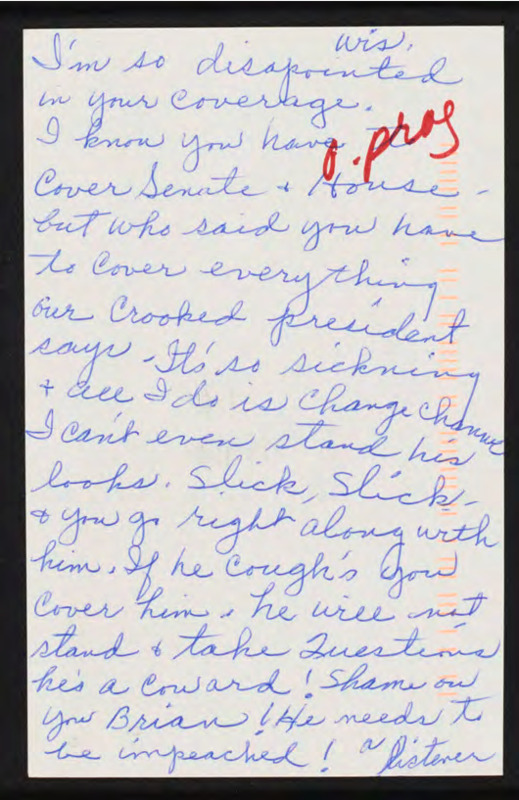 wis.
I'm so disapointed
in your coverage.
I know you have to
o. prog
Cover Senate & House -
but who said you have
to cover everything
our Crooked president
says. It's so sickning
& all I do is change channel
I can't even stand his
looks. Slick, Slick -
& you go right along with
him. If he cough's you
cover him. he will not
stand & take Questions
he's a coward! Shame on
you Brian! He needs to
be impeached! a listener